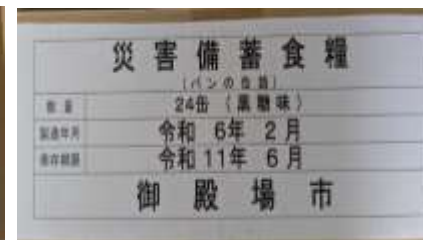 災害備蓄食糧
(パンの缶詰)
数量 24缶 (黒糖味)
製造年月 令和 6年 2月
保存期限 令和 11年 6月
御殿場市